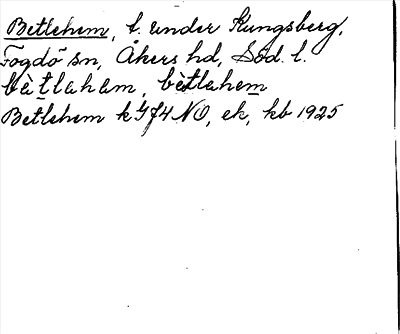 Betlehem, t. under Kungsberg,
Fogdö sn, Åkers hd, Söd. l.
bètlaham, bètlahem
Betlehem k GJ4 NO, ek, kb 1925